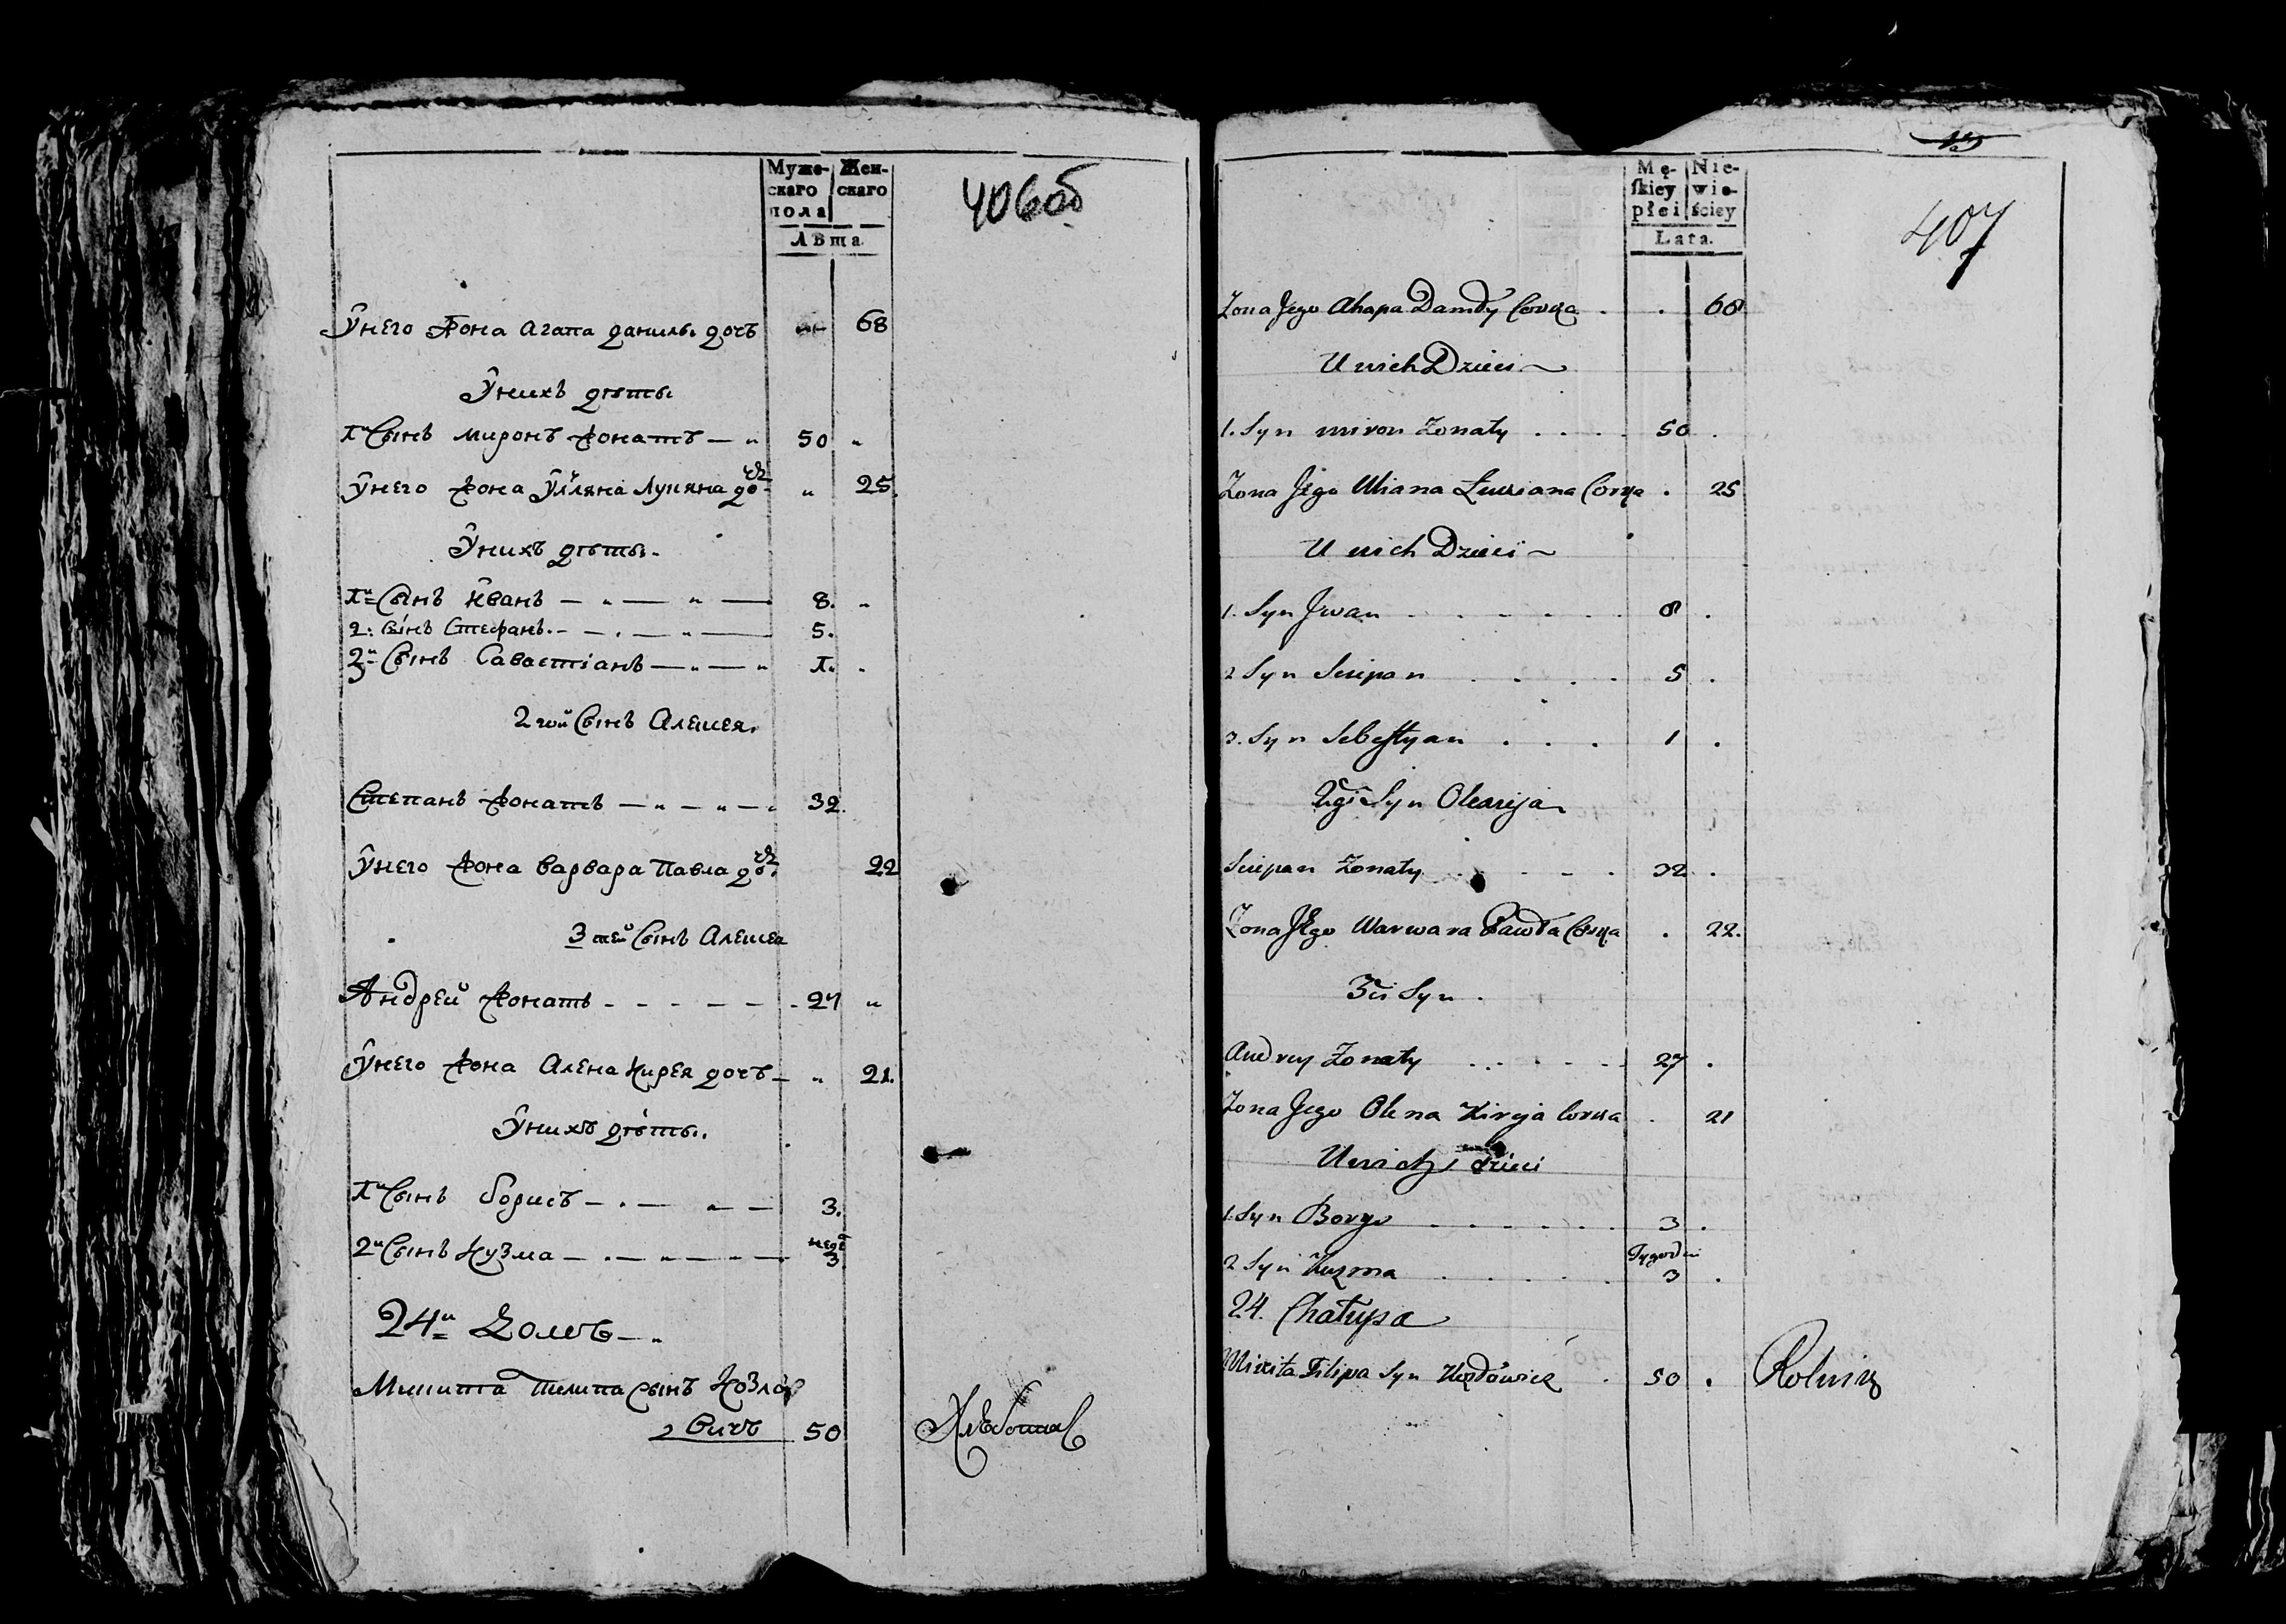 Муже-
скаго
пола
Жен-
скаго
Лѣта.
406об
Ўнего Жона Агапа данилы дочь 68
Ўнихъ дѣты
1й Сынъ миронъ жонатъ — „ 50 „
Ўнего жона Ўлляна Лукяна дочь „ 25.
Ўнихъ дѣты.
1й Сынъ Иванъ — „ — „ — 8. „
2: сынъ Стефанъ. — — . — „ — 5.
3й Сынъ Савастіанъ — „ — „ 1. .
2гой Сынъ Алексея.
Степанъ жонатъ — „ — „ — „ 32.
Ўнего жона варвара Павла дочь 22
3тей Сынъ Алексея
Андрей жонатъ - - - - - - 27 „
Ўнего жона Алена Кирея дочъ — „ 21.
Ўнихъ дѣты.
1й Сынъ борисъ — . — „ — 3.
2й Сынъ Кузма — . — „ — „ — недѣ 3
24й Домъ — „
Микита пилипа сынъ Козло
вичъ 50
Mę-
ſkiey
płci
Nie-
wie-
ściey
Lata.
407
Zona Jego Ahapa Daniły Corka . . 68
U nich Dzieci ~
1. Syn miron Zonaty . . . . 50 .
Zona Jego Uliana Łukiana Corka . 25
U nich Dzieci ~
1. Syn Jwan . . . . . . 8 .
2 Syn Sciepan . . . . 5 .
3. Syn Sebeſtyan . . . 1 .
2gi Syn Olexeja
Sciepan Zonaty . . . . 32 .
Zona Jego Warwara Pawła Corka . 22.
3ci Syn .
Andrey Zonaty . . . . . . 27 .
Zona Jego Olena Kireja Corka . 21
U nich dzieci
1. Syn Borys . . . . . . 3 .
2 Syn Kuzma . . . . . Tygodni 3 .
24. Chałupa
Mikita Filipa Syn Kozłowicz . 50 . Rolnik